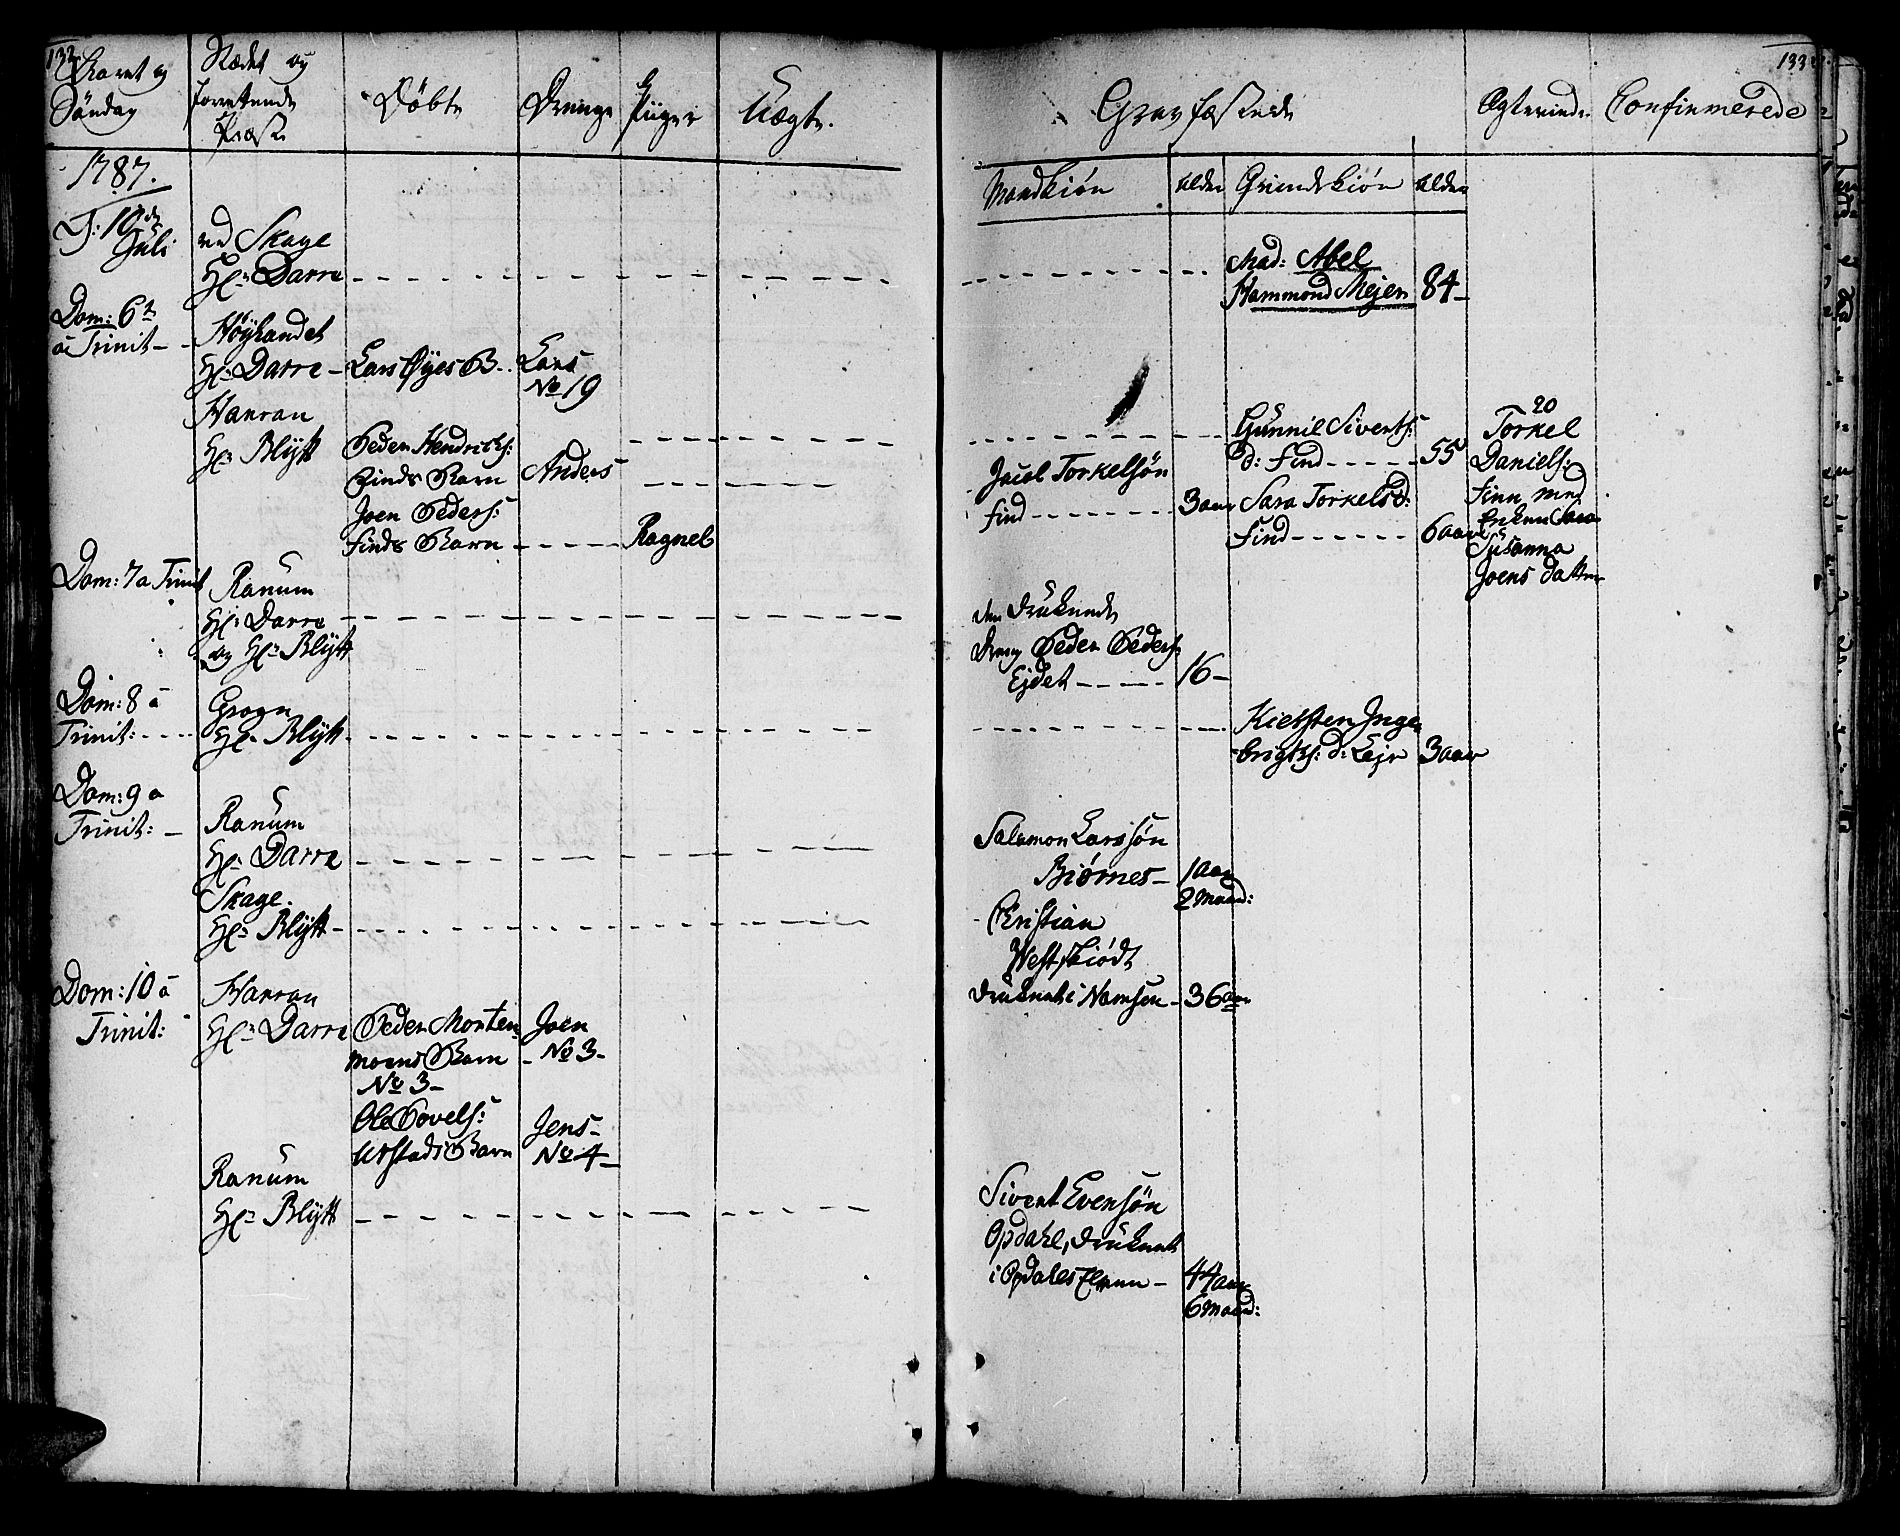 132
Aaret og
Søndag
Stædet og
forrettende
Præst
Døbte
Drenge
Piiger
Uægte.
1787.
D: 10de
Juli
ved Skage
Hr: Darre
Dom: 6te
a Trinit
Høylandet
Hr: Darre
Lars Øyes B.
Lars
No 19
Harran
Hr: Blytt
Peder Hendrichs:
Finds Barn
Anders
Joen Peders:
Finds Barn
Ragnel
Dom: 7 a Trinit
Ranum
Hr: Darre
og Hr: Blytt
Dom: 8 a
Trinit:
Grogn
Hr: Blytt
Dom: 9 a
Trinit:
Ranum
Hr: Darre
Skage.
Hr: Blytt
Dom: 10 a
Trinit:
Harran
Hr: Darre
Peder Morten
moens Barn
No 3
Joen
No 3
Ole Povels:
Urstads Barn
Jens
No 4
Ranum
Hr: Blytt
133
Gravfæstede
Ægteviede
Confirmerede
Mandkiøn
Alder
Qvindekiøn
Alder
Mad: Abel
Hammond Mejer
84
Gunnil Siverts:
d: Find
55
Jacob Torkelsøn
Find
3 aar
Sara Torkelsd:
Find
6 aar
20
Torkel
Daniels:
Finn med
Enken
Susanna
Joens datter
den druknede
Dreng Peder Peders:
Ejdet
16
Kiersten Inge
brigts: d: Lejr
3 aar
Salamon Larssøn
Biørnes
1 aar
2 Maand:
Christian
Westskiødt
druknet i Namsen
36 aar
Sivert Evensøn
Opdahl, druknet
i Opdals Elven
44 aar
6 Maand: